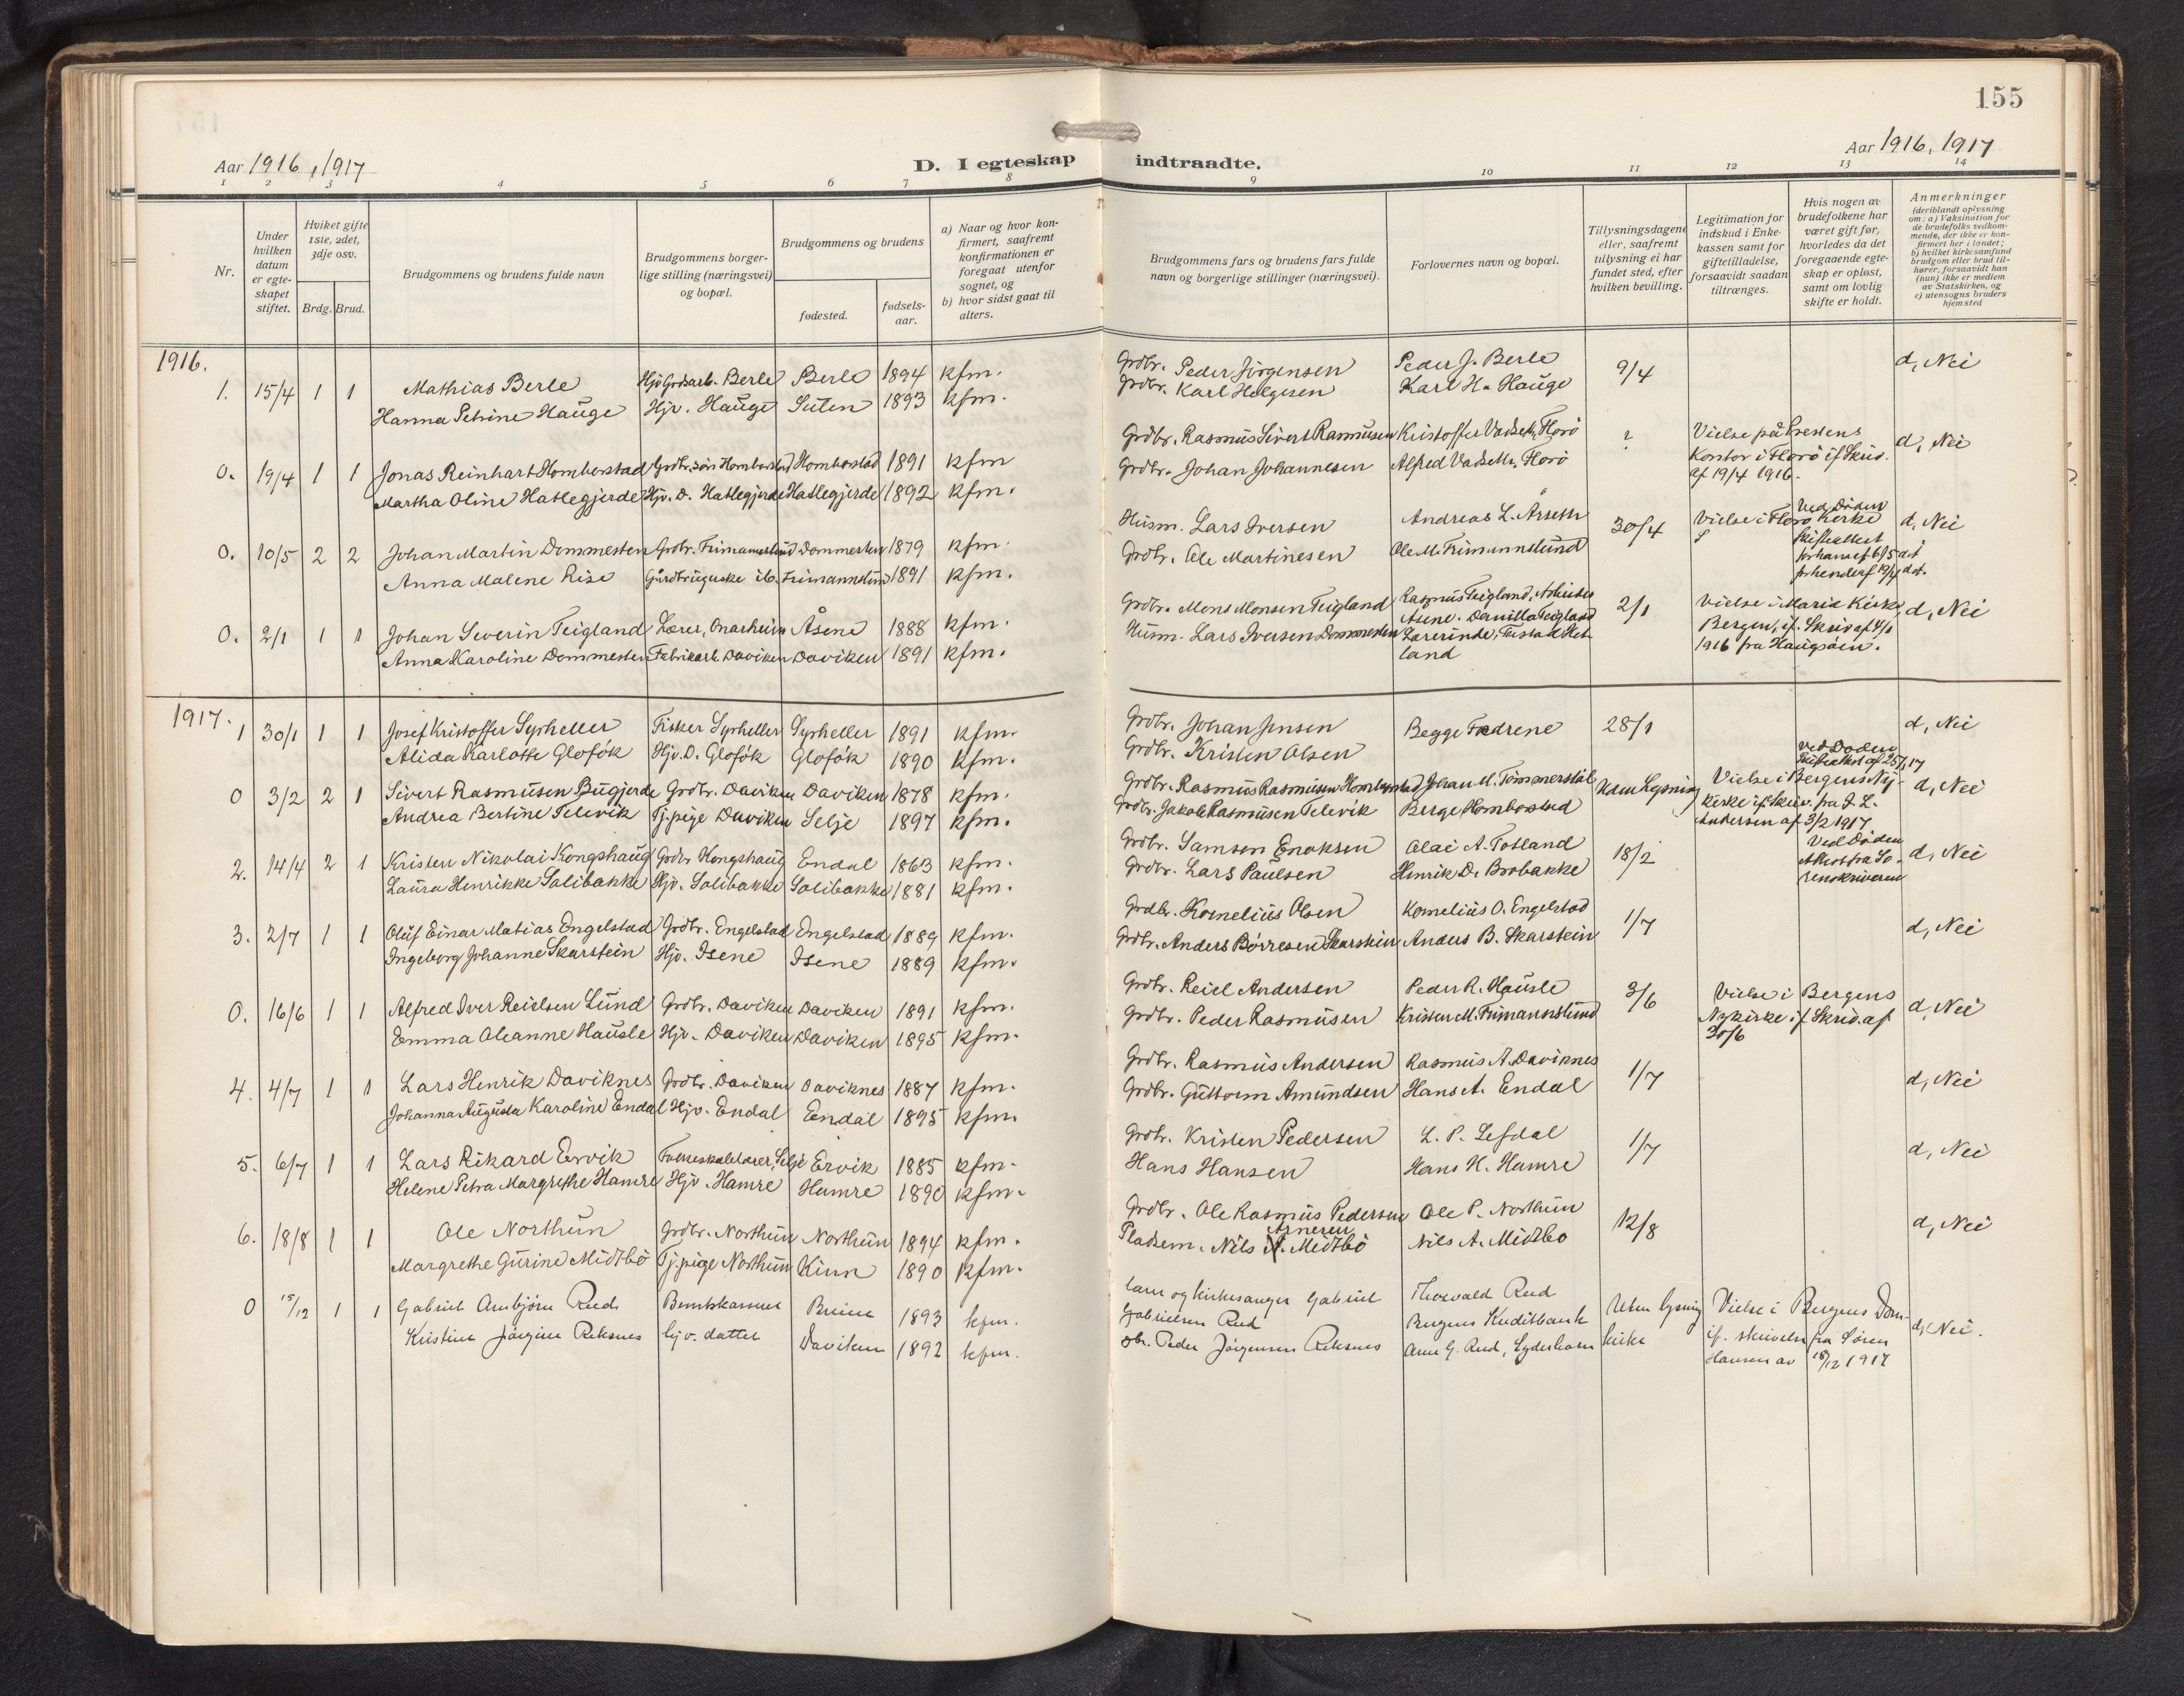 155
Aar 1916, 1917
D. I egteskap indtraadte.
Aar 1916, 1917
1 2 3 4 5 6 7 8 9 10 11 12 13 14
Nr.
Under hvilken datum er egteskapet stiftet.
Hvilket gifte 1ste, 2det, 3dje osv.
Brdg. Brud.
Brudgommens og brudens fulde navn
Brudgommens borgerlige stilling (næringsvei) og bopæl.
Brudgommens og brudens
fødested.
fødselsaar.
a) Naar og hvor konfirmert, saafremt konfirmationen er foregaat utenfor sognet, og
b) hvor sidst gaat til alters.
Brudgommens fars og brudens fars fulde navn og borgerlige stillinger (næringsvei).
Forlovernes navn og bopæl.
Tillysningsdagene eller, saafremt tillysning ei har fundet sted, efter hvilken bevilling.
Legitimation for indskud i Enkekassen samt for giftetilladelse, forsaavidt saadan tiltrænges.
Hvis nogen av brudefolkene har været gift før, hvorledes da det foregaaende egteskap er opløst, samt om lovlig skifte er holdt.
Anmerkninger (deriblandt oplysning om: a) Vaksination for de brudefolks vedkommende, der ikke er konfirmert her i landet; b) hvilket kirkesamfund brudgom eller brud tilhører, forsaavidt han (hun) ikke er medlem av Statskirken, og c) utensogns bruders hjemsted
1916.
1. 15/4 1 1 Mathias Berle Hjv Grdsarb. Berle Berle 1894 kfm. Grdbr. Peder Jörgensen Peder J. Berle 9/4 d, Nei
Hanna Petrine Hauge Hjv. Hauge Suten 1893 kfm. Grdbr. Karl Helgesen Karl H. Hauge
0. 19/4 1 1 Jonas Reinhart Hombostad Grdbr.sön Hombostad Hombostad 1891 kfm Grdbr. Rasmus Sivert Rasmussen Kristoffer Vadseth, Florö ? Vielse på Prestens d, Nei
Martha Oline Hatlegjerde Hjv. D. Hatlegjerde Hatlegjerde 1892 kfm. Grdbr. Johan Johannesen Alfred Vadseth, Florö Kontor i Florö if Skriv.
af 19/4 1916.
0. 10/5 2 2 Johan Martin Dommesten Grdbr. Frimannslund Dommesten 1879 kfm. Husm. Lars Iversen Andreas L. Årseth 30/4 Vielse i Florö Kirke Ved Döden d, Nei
Anna Malene Rise Gårdbrugerske ib. Frimannslund 1891 kfm. Grdbr. Ole Martinesen Ole M. Frimannslund Skifteattest
for ham af 6/5 d.å
for hende af 19/4 d.å.
0. 2/1 1 1 Johan Severin Teigland Lærer, Onarheim Åsene 1888 kfm. Grdbr. Mons Monsen Teigland Rasmus Teigland, 2/1 Vielse i Maria Kirke, d, Nei
Anna Karoline Dommesten Fabrikarb. Daviken Daviken 1891 kfm. Husm. Lars Iversen Dommesten Åsene. Teigland Bergen, if. Skriv af 4/1
Lærerinde, 1916 fra Haugsöen.
land
1917.
1 30/1 1 1 Josef Kristoffer Syrheller Fisker Syrheller Syrheller 1891 kfm. Grdbr. Johan Jensen Begge Fædrene 28/1 d, Nei
Alida Karlotte Glofök Hjv. D. Glofök Glofök 1890 kfm. Grdbr. Kristen Olsen
0 3/2 2 1 Sivert Rasmusen Bugjerde Grdbr. Daviken Daviken 1878 kfm. Grdbr. Rasmus Rasmusen Hombostad Johan M. Tömmerstöl Uden Lysning Vielse i Bergens Ny- Ved Döden Skifteattest af 25/1 17 d, Nei
Andrea Bertine Televik Tj.pige Daviken Selje 1897 kfm. Grdbr. Jakob Rasmusen Televik Berge Hombostad kirke if Skriv. fra J. L.
Andersen af 3/2 1917
2. 14/4 2 1 Kristen Nikolai Kongshaug Grdbr Kongshaug Endal 1863 kfm. Grdbr. Samson Enoksen Olai A. Totland 18/2 Ved Döden d, Nei
Laura Henrikke Solibakke Hjv. Solibakke Solibakke 1881 kfm. Grdbr. Lars Paulsen Henrik D. Brobakke Attest fra Sorenskriveren
3. 2/7 1 1 Oluf Einar Matias Engelstad Grdbr. Engelstad Engelstad 1889 kfm. Grdbr. Kornelius Olsen Kornelius O. Engelstad 1/7 d, Nei
Ingeborg Johanne Skarstein Hjv. Isene Isene 1889 kfm. Grdbr. Anders Börresen Skarstein Anders B. Skarstein
0. 16/6 1 1 Alfred Iver Reielsen Lund Grdbr. Daviken Daviken 1891 kfm. Grdbr. Reiel Andersen Peder R. Hausle 3/6 Vielse i Bergens d, Nei
Emma Oleanne Hausle Hjv. Daviken Daviken 1895 kfm. Grdbr. Peder Rasmusen Kristen M. Frimannslund Nykirke if. Skriv. af
30/6
4. 4/7 1 1 Lars Henrik Daviknes Grdbr. Daviken Daviknes 1887 kfm. Grdbr. Rasmus Andersen Rasmus A. Daviknes 1/7 d, Nei
Johanna Augusta Karoline Endal Hjv. Endal Endal 1895 kfm. Grdbr. Guttorm Amundsen Hans A. Endal
5. 6/7 1 1 Lars Rikard Ervik Folkeskolelærer, Selje Ervik 1885 kfm. Grdbr. Kristen Pedersen L. P. Lefdal 1/7 d, Nei
Helene Petra Margrethe Hamre Hjv. Hamre Hamre 1890 kfm. Hans Hansen Hans H. Hamre
6. 18/8 1 1 Ole Northun Grdbr. Northun Northun 1894 kfm. Grdbr. Ole Rasmus Pedersen Ole P. Northun 12/8 d, Nei
Margrethe Gurine Midtbö Tj.pige Northun Kinn 1890 kfm. Pladsem. Nils Midtbö Nils A. Midtbö
0 15/12 1 1 Gabriel Arnbjörn Rud Bankkasserer 1893 kfm. lærer og kirkesanger Gabriel Thorvald Rud Uten lysning Vielse i Bergens Dom- d, Nei.
Kristine Jörgine Reksnes hjv. datter Daviken 1892 kfm. Gabrielsen Rud Bergens Kreditbank kirke if. skrivelse fra Sören
gbr. Peder Jörgensen Reksnes G. Rud, Hansen av 18/12 1917